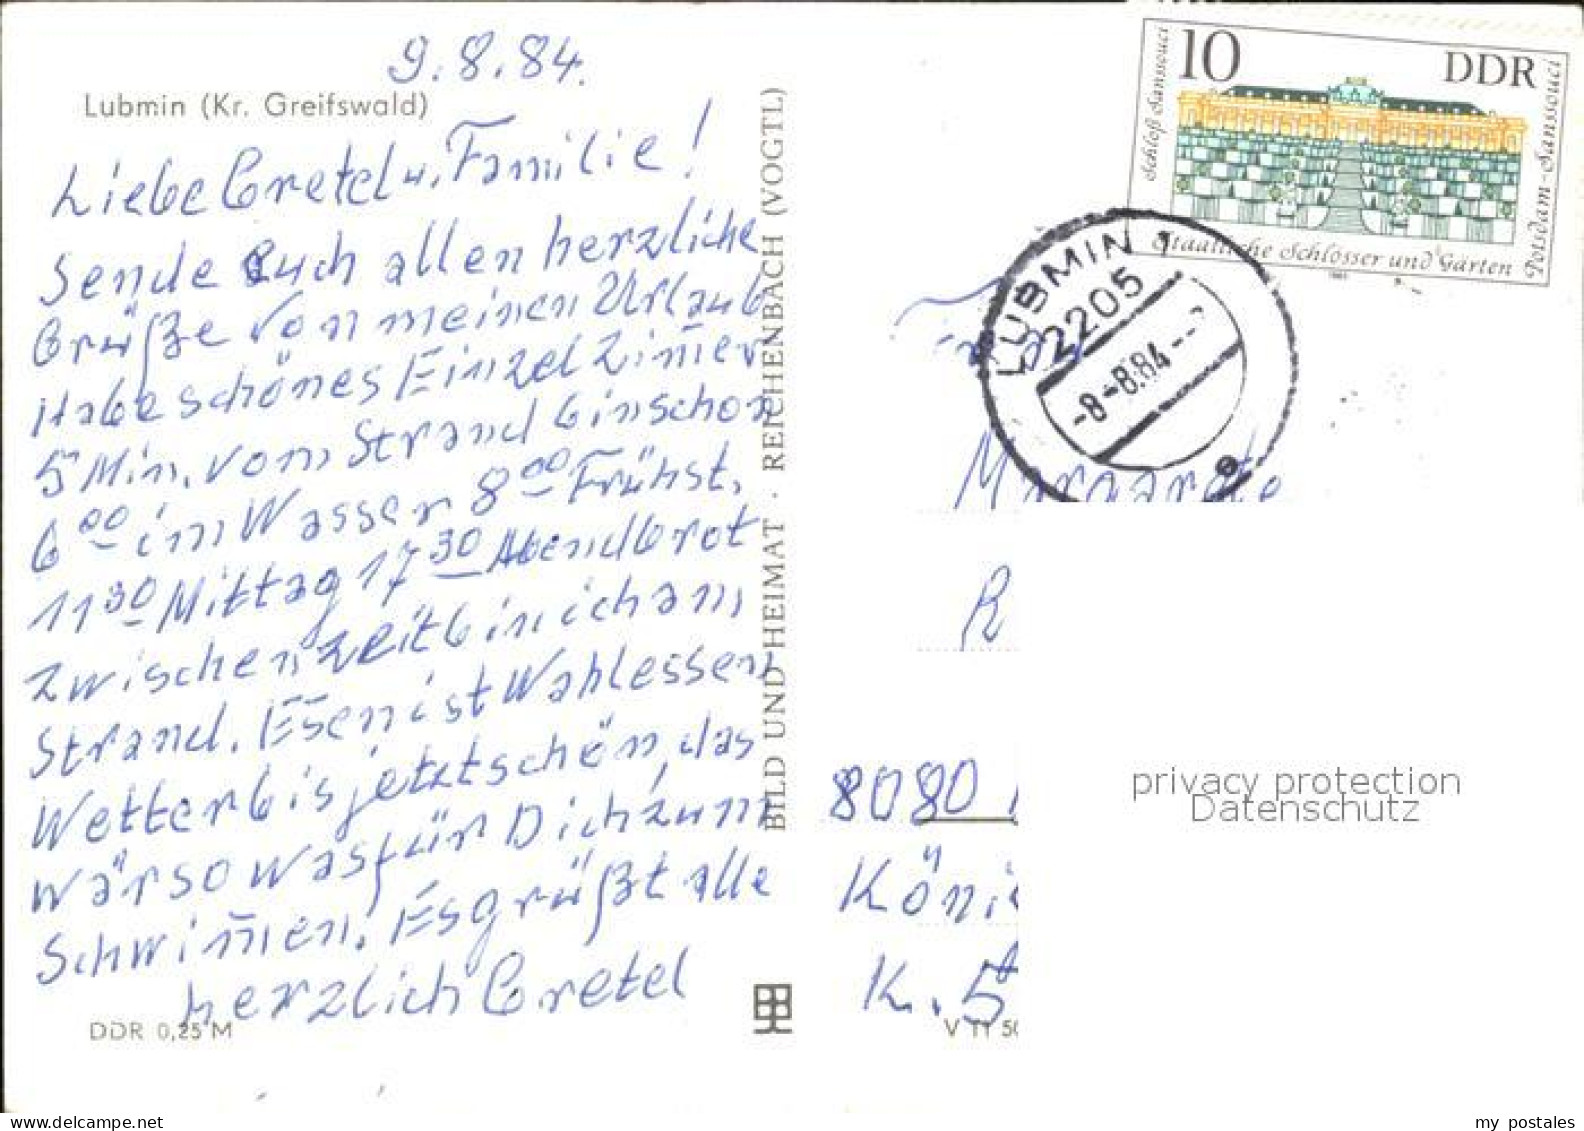 9.8.84.
Lubmin (Kr. Greifswald)
Liebe Gretel u. Familie!
Sende Euch allen herzliche
Grüße von meinen Urlaub
Habe schönes Einzelzim̄er
5 Min. vom Strand bin schon
6⁰⁰ im Wasser 8⁰⁰ Frühst.
11³⁰ Mittag 17³⁰ Abendbrot
zwischenzeit bin ich am
Strand. Es̄en ist Wahlessen
Wetter bis jetzt schön, das
wär so was für Dich, zum
Schwim̄en. Es grüßt alle
herzlich Gretel
DDR 0,25 M
BILD UND HEIMAT · REICHENBACH (VOGTL)
10 DDR
Schloß Sanssouci
Potsdam-Sanssouci
Staatliche Schlösser und Gärten
LUBMIN 1
2205
-8.-8.84--
Margarete
R
8080
Köni
K. 5
V 11 50
privacy protection
Datenschutz
my postales